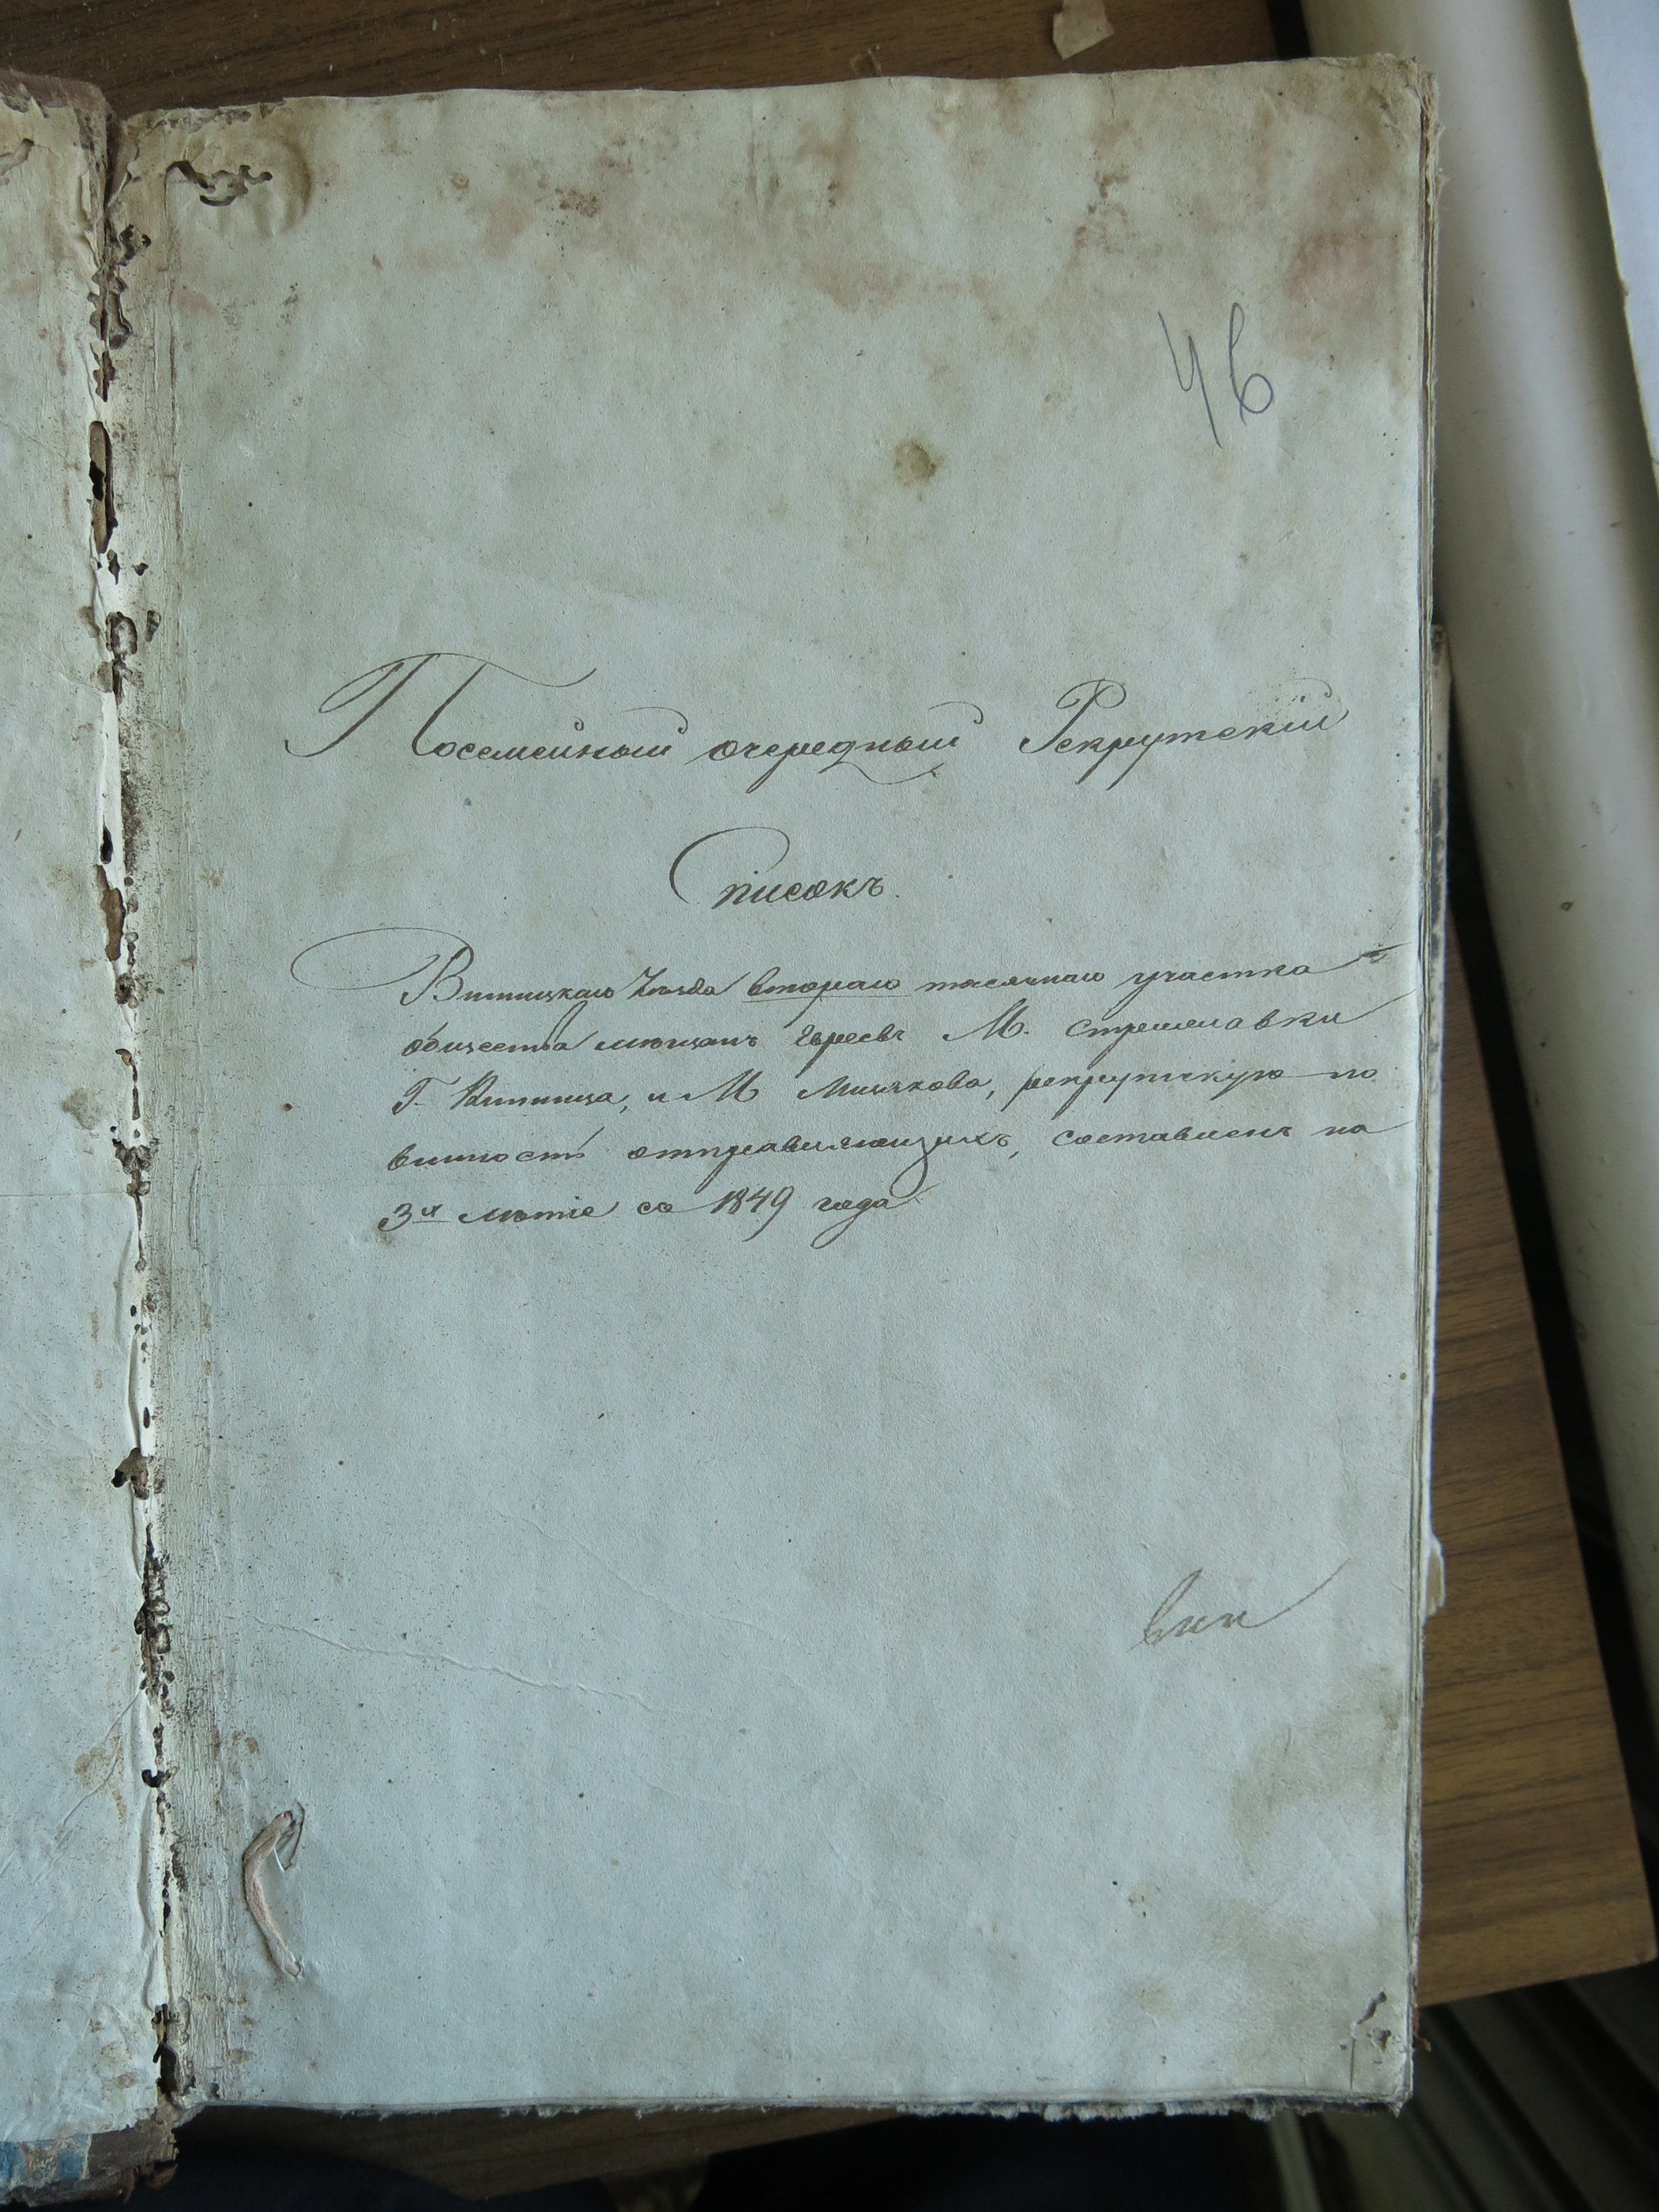 46
Посемейный очередный Рекрутскій
Списокъ.
Винницкаго Уѣзда втораго тысячнаго участка
общества мѣщанъ Евреевъ М. Стрижавки
Г. Винница, и М Мизякова, рекрутскую по
винность отправляющихъ, составленъ на
3х лѣтіе со 1849 года